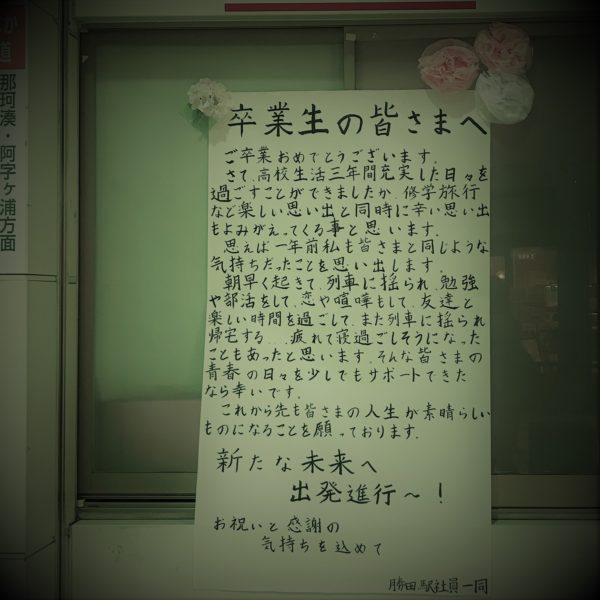 か
道
那珂湊・阿字ヶ浦方面
卒業生の皆さまへ
ご卒業おめでとうございます.
さて、高校生活三年間充実した日々を
過ごすことができましたか.修学旅行
など楽しい思い出と同時に辛い思い出
もよみがえってくる事と思います.
思えば一年前私も皆さまと同じような
気持ちだったことを思い出します.
朝早く起きて、列車に揺られ、勉強
や部活をして、恋や喧嘩もして、友達と
楽しい時間を過ごして、また列車に揺られ
帰宅する...疲れて寝過ごしそうになった
こともあったと思います.そんな皆さまの
青春の日々を少しでもサポートできた
なら幸いです.
これから先も皆さまの人生が素晴らしい
ものになることを願っております.
新たな未来へ
出発進行〜!
お祝いと感謝の
気持ちを込めて
勝田駅社員一同